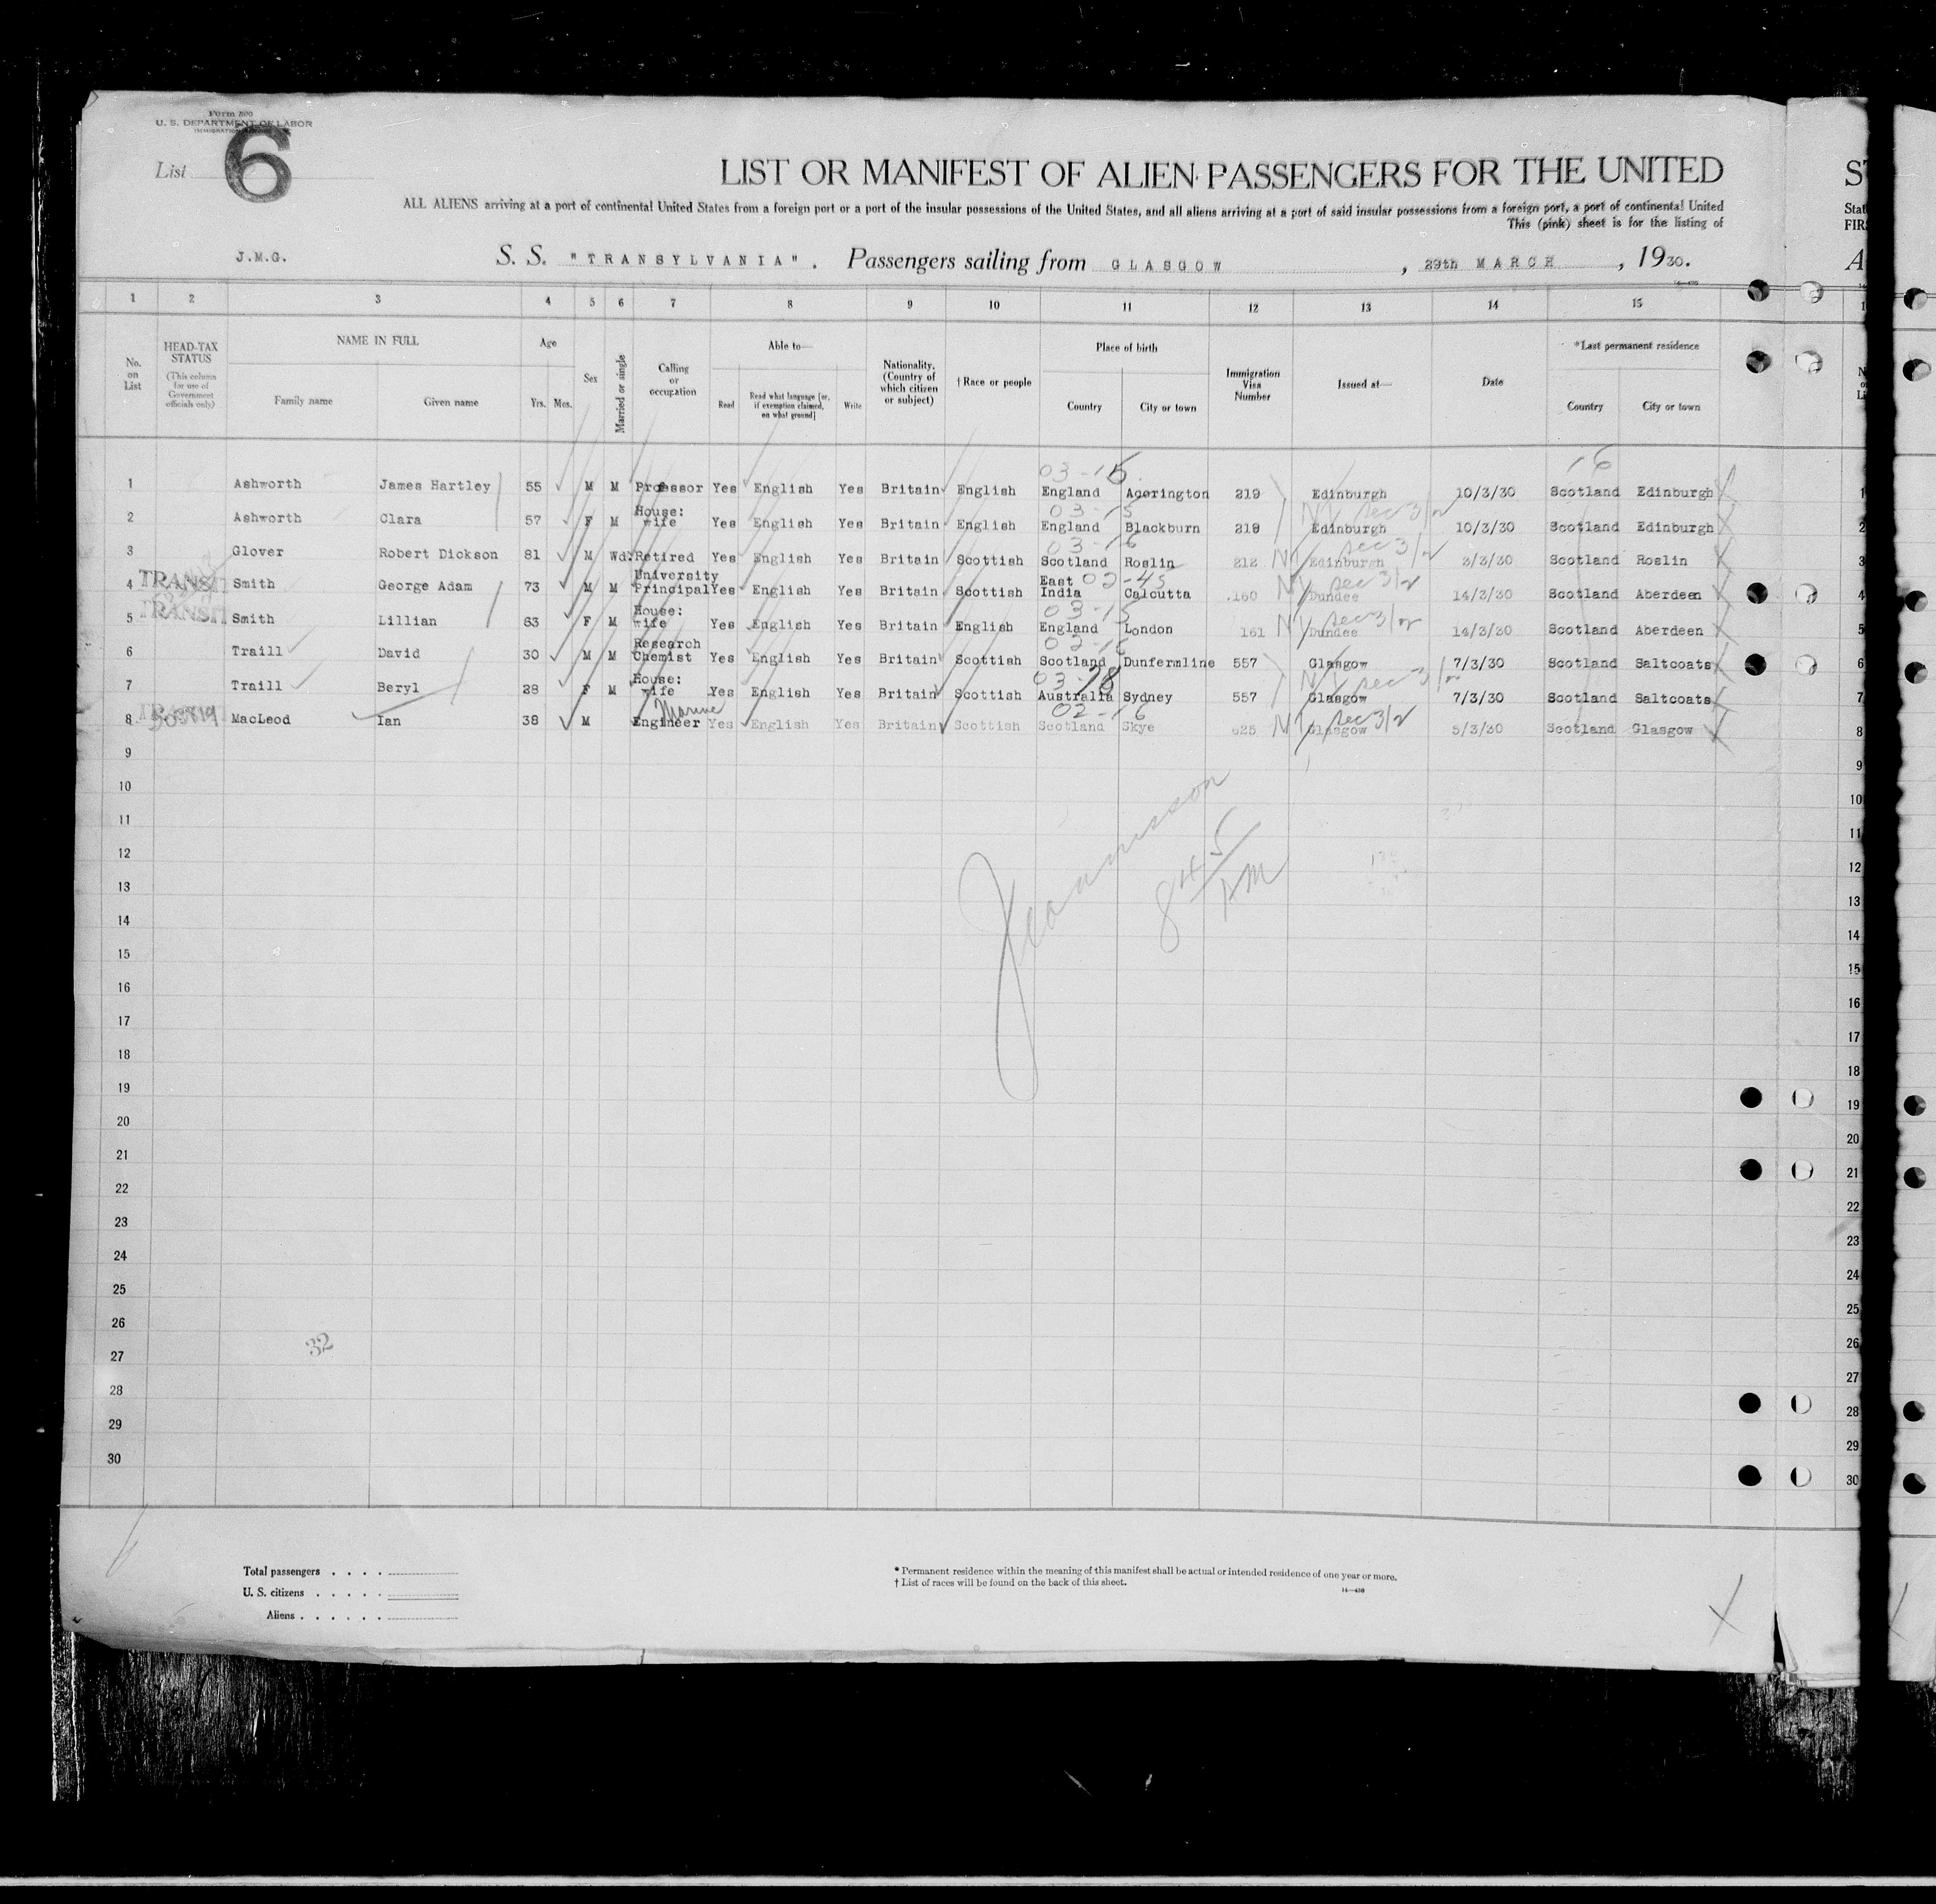 Form 700
U. S. DEPARTMENT OF LABOR
IMMIGRATION SERVICE
List 6
LIST OR MANIFEST OF ALIEN PASSENGERS FOR THE UNITED
ALL ALIENS arriving at a port of continental United States from a foreign port or a port of the insular possessions of the United States, and all aliens arriving at a port of said insular possessions from a foreign port, a port of continental United
This (pink) sheet is for the listing of
J.M.G. S. S. "TRANSYLVANIA". Passengers sailing from GLASGOW, 29th MARCH, 1930.
1 2 3 4 5 6 7 8 9 10 11 12 13 14 15
No. on List
HEAD-TAX STATUS (This column for use of Government officials only)
NAME IN FULL
Family name Given name
Age
Yrs. Mos.
Sex
Married or single
Calling or occupation
Able to—
Read Read what language [or, if exemption claimed, on what ground] Write
Nationality. (Country of which citizen or subject)
† Race or people
Place of birth
Country City or town
Immigration Visa Number
Issued at—
Date
*Last permanent residence
Country City or town
03-15 16
1 Ashworth James Hartley 55 M M Professor Yes English Yes Britain English England Accrington 219 Edinburgh 10/3/30 Scotland Edinburgh 1
03-15 NY sec 3/2
2 Ashworth Clara 57 F M House: wife Yes English Yes Britain English England Blackburn 219 Edinburgh 10/3/30 Scotland Edinburgh 2
03-16 NY sec 3/2
3 Glover Robert Dickson 81 M Wd: Retired Yes English Yes Britain Scottish Scotland Roslin 212 Edinburgh 3/3/30 Scotland Roslin 3
02-45 NY sec 3/2
4 TRANSIT Smith George Adam 73 M M University Principal Yes English Yes Britain Scottish East India Calcutta 160 Dundee 14/3/30 Scotland Aberdeen 4
03-15 NY sec 3/2
5 TRANSIT Smith Lillian 63 F M House: wife Yes English Yes Britain English England London 161 Dundee 14/3/30 Scotland Aberdeen 5
02-16
6 Traill David 30 M M Research Chemist Yes English Yes Britain Scottish Scotland Dunfermline 557 Glasgow 7/3/30 Scotland Saltcoats 6
03-78 NY sec 3/2
7 Traill Beryl 28 F M House: wife Yes English Yes Britain Scottish Australia Sydney 557 Glasgow 7/3/30 Scotland Saltcoats 7
02-16 NY sec 3/2
8 TRANSIT MacLeod Ian 38 M Marine Engineer Yes English Yes Britain Scottish Scotland Skye 625 Glasgow 5/3/30 Scotland Glasgow 8
9 9
10 10
11 11
12 12
13 13
14 14
15 15
16 16
17 17
18 18
19 19
20 20
21 21
22 22
23 23
24 24
25 25
26 26
27 27
28 28
29 29
30 30
8 45 AM
32
Total passengers . . . .
U. S. citizens . . . . .
Aliens . . . . . .
* Permanent residence within the meaning of this manifest shall be actual or intended residence of one year or more.
† List of races will be found on the back of this sheet.
14—430